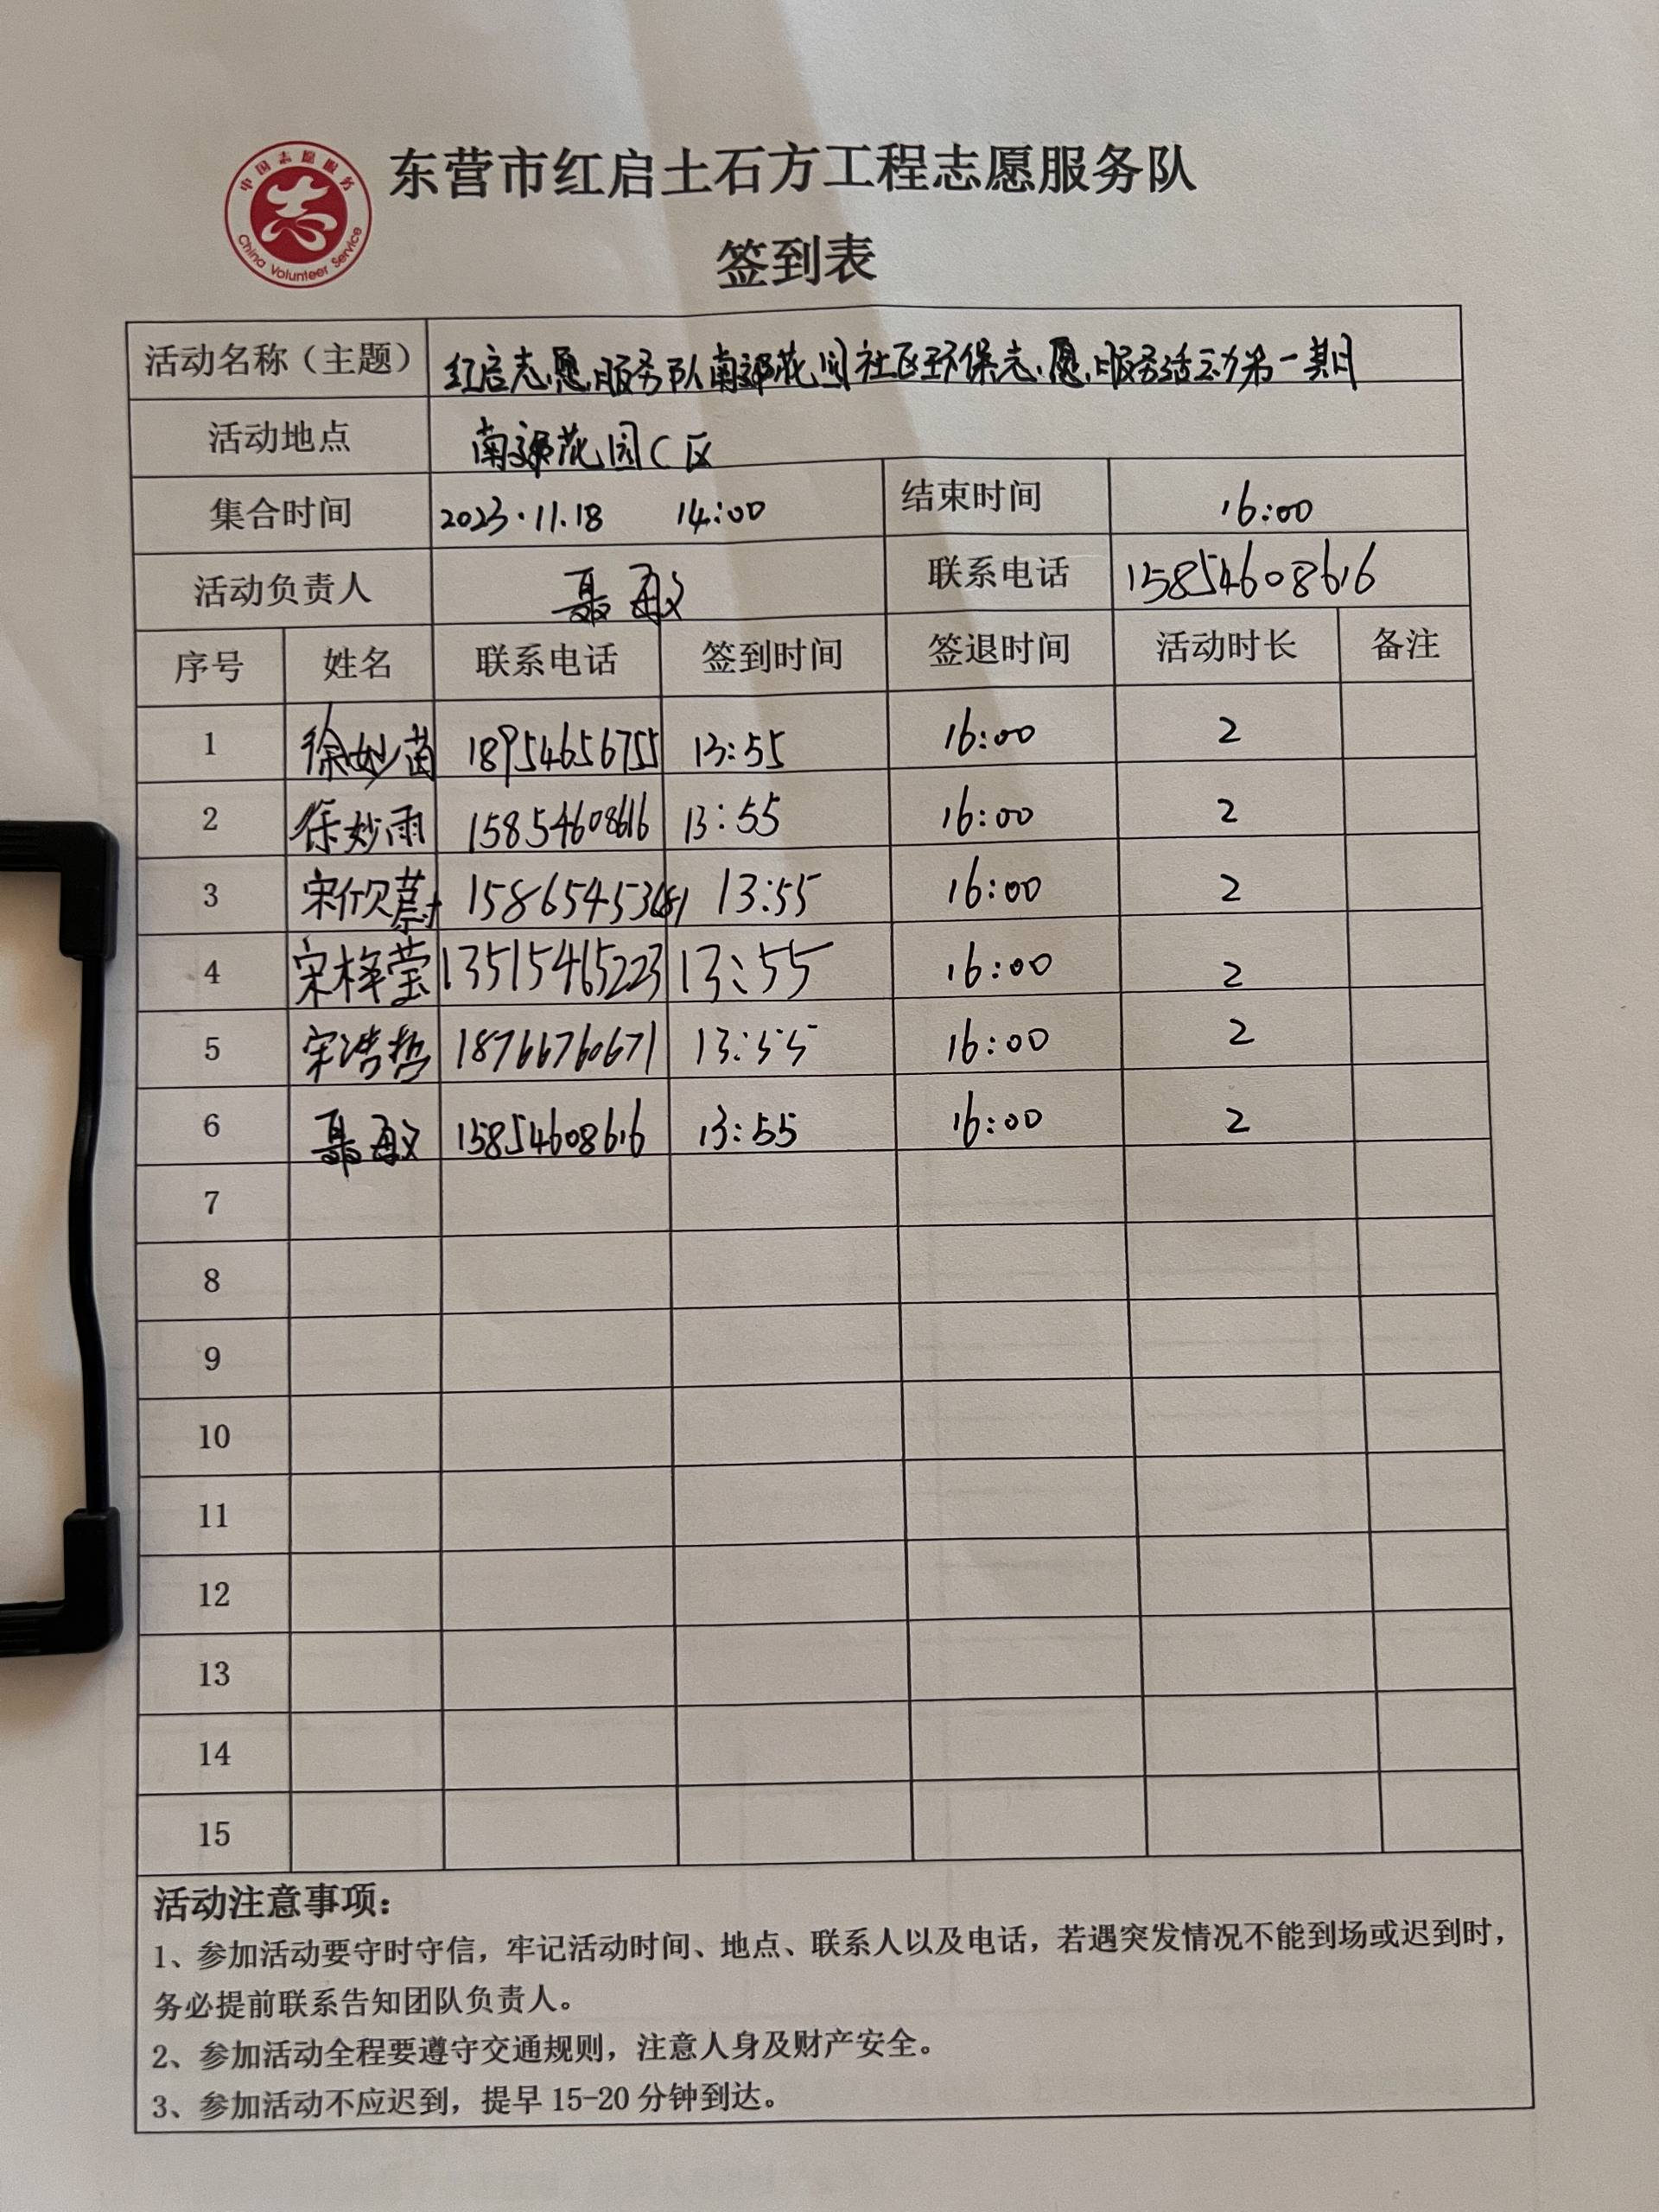 中国志愿服务
China Volunteer Service
东营市红启土石方工程志愿服务队
签到表
活动名称（主题） 红启志愿服务队南郊花园社区环保志愿服务活动第一期
活动地点 南郊花园C区
集合时间 2023.11.18 14:00 结束时间 16:00
活动负责人 聂敏 联系电话 15854608616
序号 姓名 联系电话 签到时间 签退时间 活动时长 备注
1 徐妙茵 18954656755 13:55 16:00 2
2 徐妙雨 15854608616 13:55 16:00 2
3 宋欣蔚 13:55 16:00 2
4 宋梓莹 13515465223 13:55 16:00 2
5 宋浩哲 18766760671 13:55 16:00 2
6 聂敏 15854608616 13:55 16:00 2
7
8
9
10
11
12
13
14
15
活动注意事项：
1、参加活动要守时守信，牢记活动时间、地点、联系人以及电话，若遇突发情况不能到场或迟到时，
务必提前联系告知团队负责人。
2、参加活动全程要遵守交通规则，注意人身及财产安全。
3、参加活动不应迟到，提早 15-20 分钟到达。